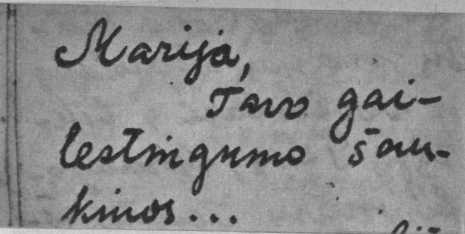 Marija,
Tavo gai-
lestingumo šau-
kiuos...